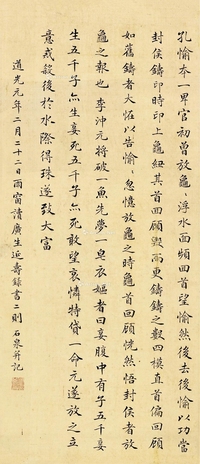 孔愉本一卑官初曾放龜浮水面頻回首望愉然後去後愉以功當
封侯鑄印時印上龜紐其首回顧毀而更鑄鑄之數四模直首偏回顧
如舊鑄者大怪以告愉愉忽憶放龜之時龜首回顧恍然悟封侯者放
龜之報也李沖元將破一魚先夢一皂衣嫗者曰妾腹中有子五千妾
生五千子亦生妾死五千子亦死敢望哀憐特貸一命元遂放之立
意戒殺後於水際得珠遂致大富
道光元年二月二十二日雨窗請廣生延壽錄書二則石泉并記